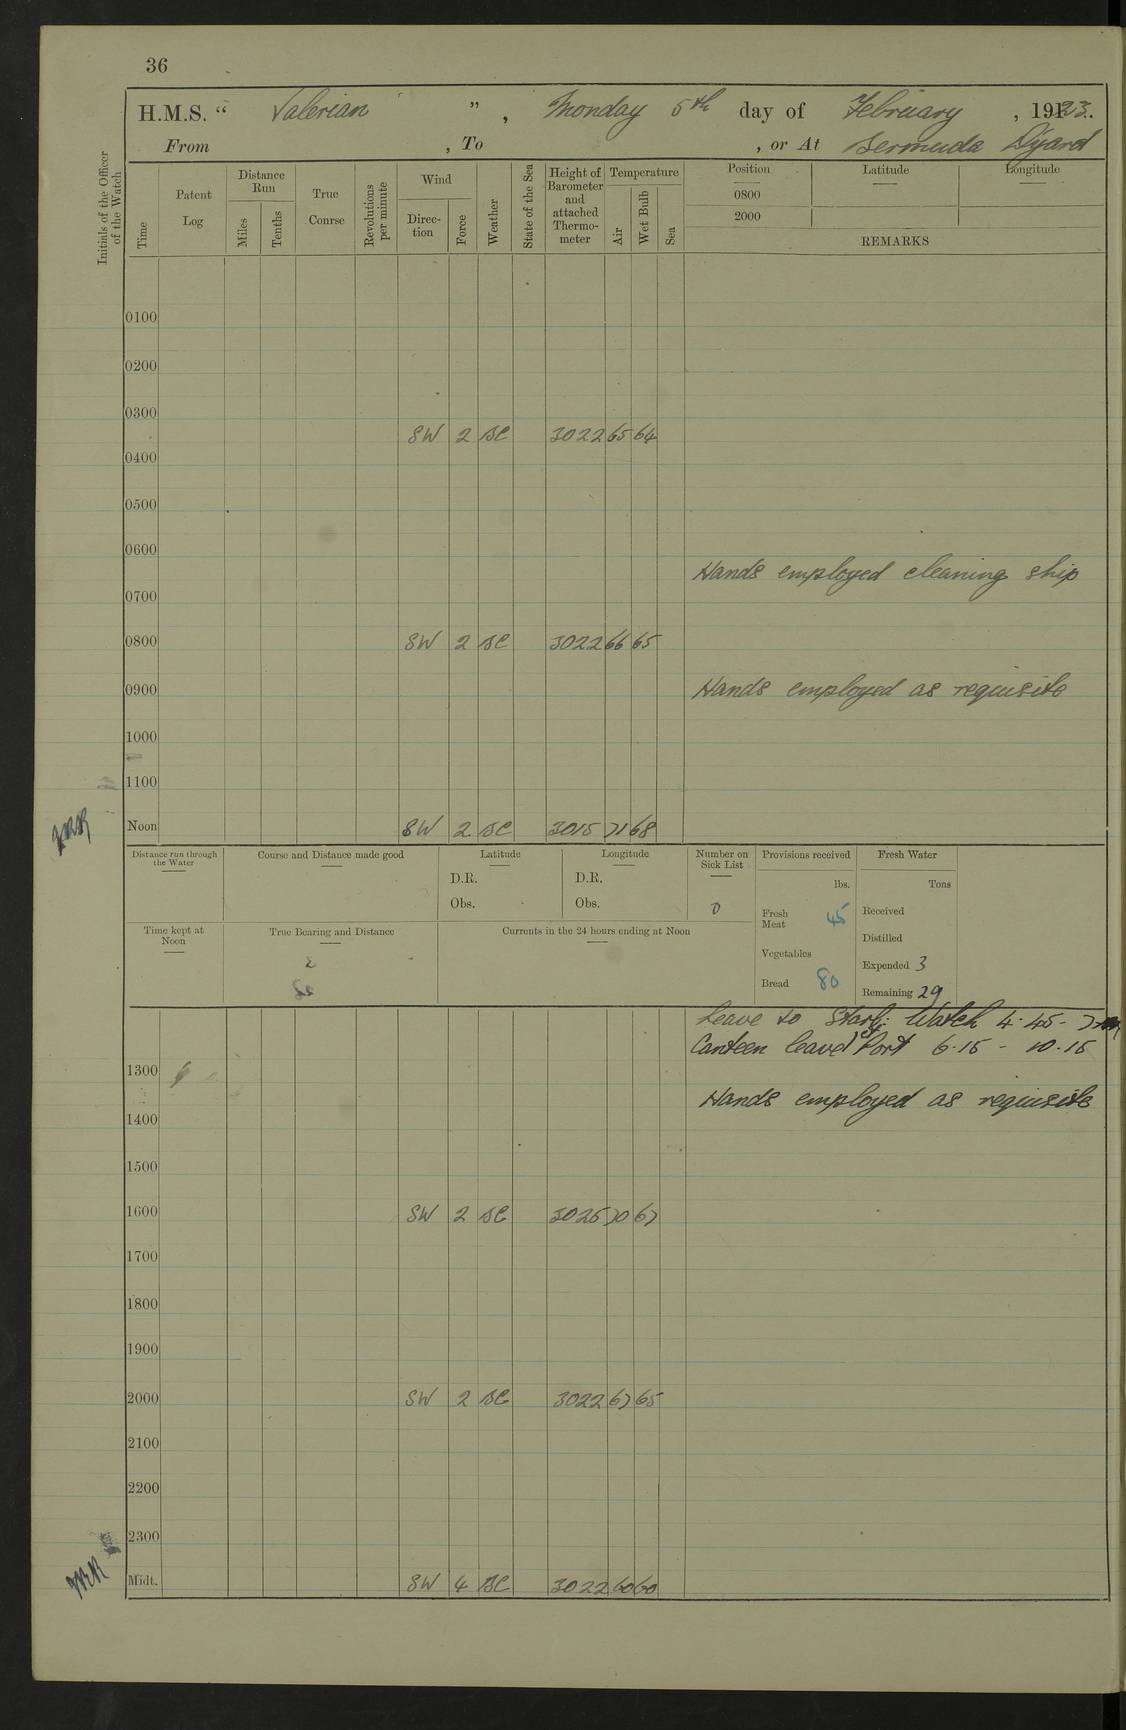 36
H.M.S. " Valerian ", Monday 5th day of February, 1923.
From , To , or At Bermuda D'yard
Initials of the Officer of the Watch
Time
Patent Log
Distance Run
Miles
Tenths
True Course
Revolutions per minute
Wind
Direction
Force
Weather
State of the Sea
Height of Barometer and attached Thermometer
Temperature
Air
Wet Bulb
Sea
Position Latitude Longitude
0800
2000
REMARKS
0100
0200
0300
SW 2 BC 3022 65 64
0400
0500
0600
Hands employed cleaning ship
0700
0800 SW 2 BC 3022 66 65
0900 Hands employed as requisite
1000
1100
Noon SW 2 BC 3015 71 68
Distance run through the Water
Course and Distance made good
Latitude
D.R.
Obs.
Longitude
D.R.
Obs.
Number on Sick List
0
Provisions received
lbs.
Fresh Meat 45
Vegetables
Bread 80
Fresh Water
Tons
Received
Distilled
Expended 3
Remaining 29
Time kept at Noon
True Bearing and Distance
Currents in the 24 hours ending at Noon
Leave to Starb. Watch 4.45 - 7
Canteen leave Port 6.15 - 10.15
1300
Hands employed as requisite
1400
1500
1600 SW 2 BC 3025 70 67
1700
1800
1900
2000 SW 2 BC 3022 67 65
2100
2200
2300
Midt. SW 4 BC 3022 60 60